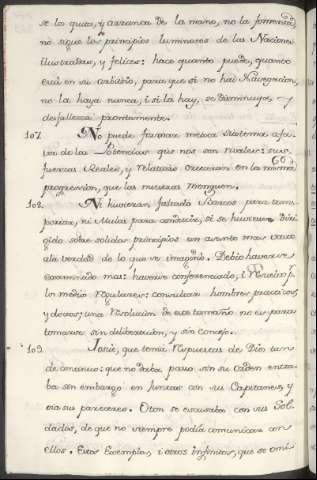 se lo quita, y arranca de la mano, no la fomenta,
no sigue los principios luminosos de las Naciones
ilustradas, y felices: hace quanto puede, quanto
está en su arbitrio, para que si no hai Navegacion,
no la haya nunca, i si la hay, se disminuya, y
desfallezca prontamente.
107. No puede formar mejor sistema a fa-
vor de las Potencias que nos son rivales: sus
fuerzas Reales, y relativas crecerán en la misma
progresion, que las nuestras menguen.
108. Ni huvieran faltado Barcos para trans-
portar, ni Mulas para conducir, si se huviera diri-
gido sobre solidos principios un asunto mas
de lo que se imaginó. Debió haverse
examinado mas: haverse conferenciado, i
medios regulares: consultar hombres practicos,
y doctos; una resolucion de este tamaño no es para
tomarse sin deliberacion, y sin consejo.
109. Josué, que tenia respuestas de Dios tan
de continuo: que no daba paso sin su orden entra-
ba sin embargo en Juntas con sus Capitanes, y
oia sus pareceres. Oton se escusaba con sus Sol-
dados, de que no siempre podía comunicar con
ellos. Estos Exemplos, i otros infinitos, que se omi